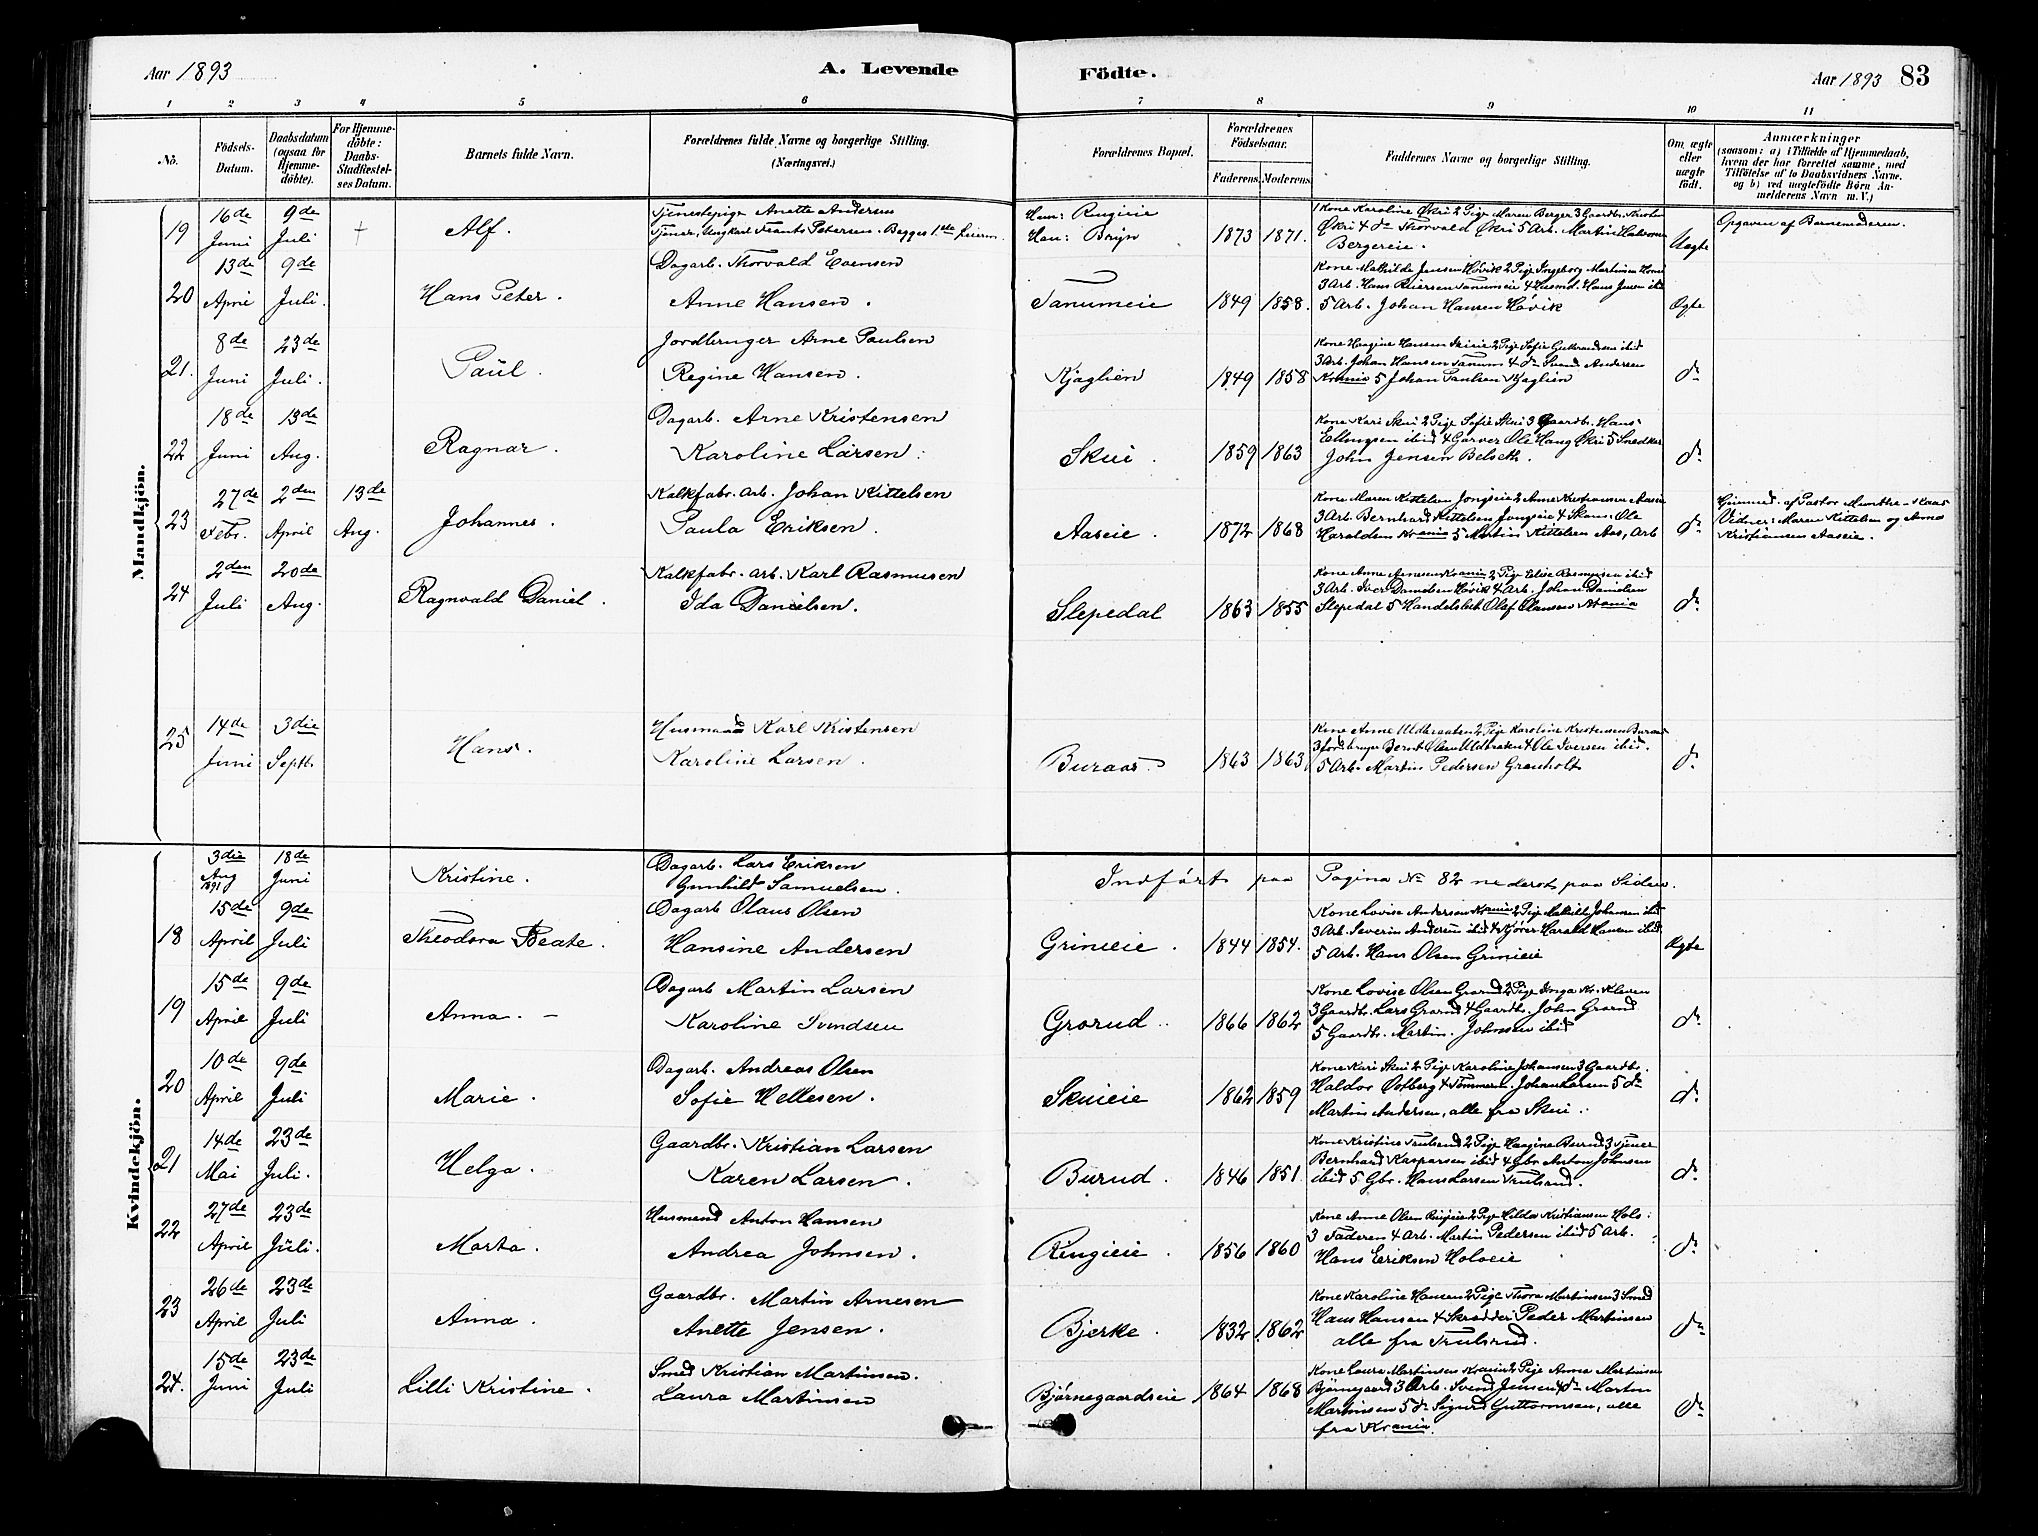 Aar 1893
A. Levende
Födte.
Aar 1893 83
1 2 3 4 5 6 7 8 9 10 11
No.
Födsels-Datum.
Daabsdatum (ogsaa for Hjemme-döbte).
For Hjemme-döbte: Daabs-Stadfæstel-ses Datum.
Barnets fulde Navn.
Forældrenes fulde Navne og borgerlige Stilling. (Næringsvei.)
Forældrenes Bopæl.
Forældrenes Födselsaar.
Faderens. Moderens.
Faddernes Navne og borgerlige Stilling.
Om ægte eller uægte födt.
Anmærkninger
(saasom: a) i Tilfælde af Hjemmedaab,
hvem der har forrettet samme, med
Tilföielse af to Daabsvidners Navne.
og b) ved uægtefödte Börn An-
melderens Navn m.V.)
Mandkjön.
19 16de Juni 9de Juli + Alf.
Tjenestepige Anette Andersen
Tjener, Ungkarl Frants Petersen. Begges 1ste Leierm.
Hun: Rugieie
Han: Bryn
1873 1871.
1 Kone Karoline Økri 2 Pige Maren Berger 3 Gaardbr.
Økri 4 do Thorvald Økri 5 Arb. Martin Halvorsen
Bergereie.
Uægte
Opgaven af Barnemoderen.
20 13de April 9de Juli. Hans Peter.
Dagarb. Thorvald Evensen
Anne Hansen.
Tanumeie 1849 1858.
Kone Mathilde Jensen Høvik 2 Pige Ingeborg Martinsen
3 Arb. Hans Tanumeie 4 Husmd. Hans Jensen ibid
5 Arb. Johan Hansen Høvik
Ægte
21. 8de Juni 23de Juli. Paul.
Jordbruger Arne Paulsen
Regine Hansen.
Kjaglien 1849 1858
Kone Hansen Skuie 2 Pige Sofie ibid
3 Arb. Johan Hansen Tanum 4 do Svend Andersen
Krania 5 Johan Paulsen Kjaglien
do
22 18de Juni 13de Aug. Ragnar.
Dagarb. Arne Kristensen
Karoline Larsen.
Skui. 1859 1863
Kone Kari Skui 2 Pige Sofie Skui 3 Gaardbr. Hans
Ellingsen ibid 4 Garver Ole Haug Økri 5 Snedker
John Jensen Belseth.
do
23 27de Febr. 2den April 13de Aug. Johannes.
Kalkfabr. arb. Johan Kittelsen
Paula Eriksen.
Aaseie. 1872 1868
Kone Maren Kittelsen Jongseie 2 Anne Kristiansen Aaseie
3 Arb. Bernhard Kittelsen Jongseie 4 Skom. Ole
Haraldsen Krania 5 Martin Kittelsen Aas, Arb
do
Hjemmed. af Pastor Munthe-Kaas
Vidner: Maren Kittelsen og Anne
Kristiansen Aaseie.
24 2den Juli 20de Aug. Ragnvald Daniel.
Kalkfabr. arb. Karl Rasmusen
Ida Danielsen.
Slepedal 1863 1855
Kone Anne Arnesen Krania 2 Pige Elise Rasmusen ibid
3 Arb. Iver Danielsen Høvik 4 Arb. Johan Danielsen
Slependal 5 Handelsbet. Olaf Olausen Krania
do
25 14de Juni 3die Septb. Hans.
Husmand Karl Kristensen
Karoline Larsen.
Buraas. 1863 1863
Kone Anne Uldbraaten 2 Pige Karoline Kristensen Buraas
3 Jordbruger Bernt Olsen Uldbraaten 4 Ole Iversen ibid.
5 Arb. Martin Pedersen Granholt
do
Kvindekjön.
3die Aug 1891 18de Juni Kristine.
Dagarb. Lars Eriksen
Gunhild Samuelsen.
Indført paa Pagina No 82 nederst paa Siden.
18 15de April 9de Juli Theodora Beate.
Dagarb Olaus Olsen
Hansine Andersen
Grinieie. 1844 1854.
Kone Lovise Andersen Krania 2 Pige Mathilde Johansen ibid
3 Arb. Severin Andersen ibid 4 Kjører Harald Hansen ibid
5 Arb. Hans Olsen Grinieie
Ægte
19 15de April 9de Juli Anna.
Dagarb Martin Larsen
Karoline Svendsen
Grorud. 1866 1862
Kone Lovise Olsen Grorud 2 Pige Inga Kr. Kleven
3 Gaardbr. Lars Grorud 4 Gaardbr. John Grorud
5 Gaardbr. Martin Johnsen ibid
do
20 10de April 9de Juli Marie.
Dagarb. Andreas Olsen
Sofie Hellesen.
Skuieie 1862 1859
Kone Kari Skui 2 Pige Karoline Johansen 3 Gaardbr.
Haldor Østberg 4 Tømmerm. Johan Larsen 5 do
Martin Andersen, alle fra Skui.
do
21 14de Mai 23de Juli. Helga.
Gaardbr. Kristian Larsen
Karen Larsen.
Burud. 1846 1851
Kone Kristine Trulsrud 2 Pige Haagine Burud 3 Tjener
Bernhard Kaspersen ibid 4 Gbr. Anton Johnsen
ibid 5 Gbr. Hans Larsen Trulsrud.
do
22 27de April 23de Juli. Marta.
Husmand Anton Hansen
Andrea Johnsen.
Ringieie. 1856 1860
Kone Anne Olsen Ringieie 2 Pige Hilda Kristiansen Hols:
3 Faderen 4 Arb. Martin Pedersen ibid 5 Arb.
Hans Eriksen Holseie
do
23 26de April 23de Juli Anna.
Gaardbr. Martin Arnesen
Anette Jensen.
Bjerke. 1832 1862
Kone Karoline Hansen 2 Pige Thora Martinsen 3 Smed
Hans Hansen 4 Skrædder Peder Martinsen
alle fra Trulsrud.
do
24. 15de Juni 23de Juli Lilli Kristine.
Smed Kristian Martinsen.
Laura Martinsen
Bjørnegaardseie 1864 1868
Kone Laura Martinsen Krania 2 Pige Anna Martinsen
Bjørnegaard 3 Arb. Svend Jensen 4 do Martin
Martinsen 5 do Sigurd Guttormsen, alle
fra Krania.
do